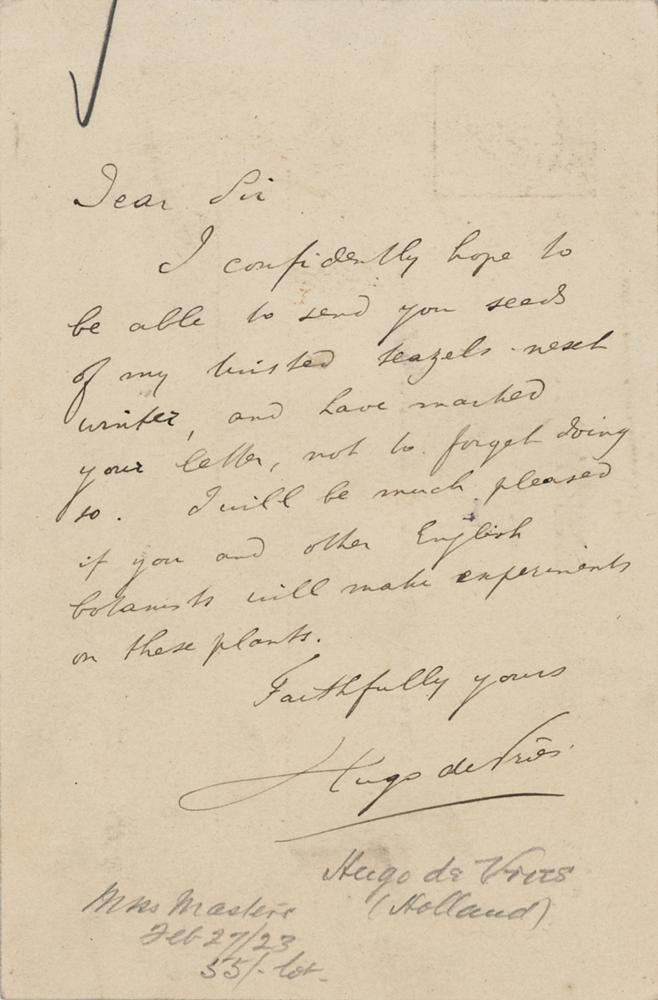 Dear Sir
I confidently hope to
be able to send you seeds
of my twisted teazels next
winter, and have marked
your letter, not to forget doing
so. I will be much pleased
if you and other English
botanists will make experiments
on these plants.
Faithfully yours
Hugo de Vries.
Hugo de Vries
(Holland)
Mrs Masters
Feb 27/23
55/- lot